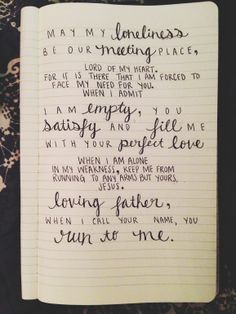 MAY MY loneliness
BE OUR meeting PLACE,
LORD OF MY HEART.
FOR IT IS THERE THAT I AM FORCED TO
FACE MY NEED FOR YOU.
WHEN I ADMIT
I AM empty, YOU
satisfy AND fill ME
WITH YOUR perfect love
WHEN I AM ALONE
IN MY WEAKNESS, KEEP ME FROM
RUNNING TO ANY ARMS BUT YOURS,
JESUS.
loving father,
WHEN I CALL YOUR NAME, YOU
run to me.